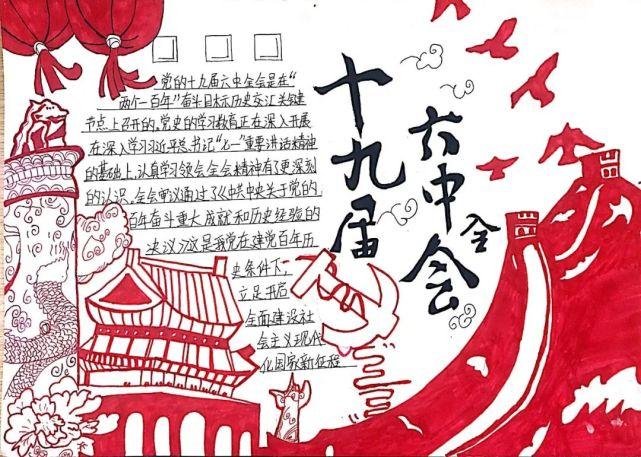 十九届
六中全会
党的十九届六中全会是在“
两个一百年”奋斗目标历史交汇关键
节点上召开的,党史的学习教育正在深入开展
在深入学习习近平总书记“七一”重要讲话精神
的基础上,认真学习领会全会精神有了更深刻
的认识,全会审议通过了《中共中央关于党的
百年奋斗重大成就和历史经验的
决议》这是我党在建党百年历
史条件下,
立足开启
全面建设社
会主义现代
化国家新征程